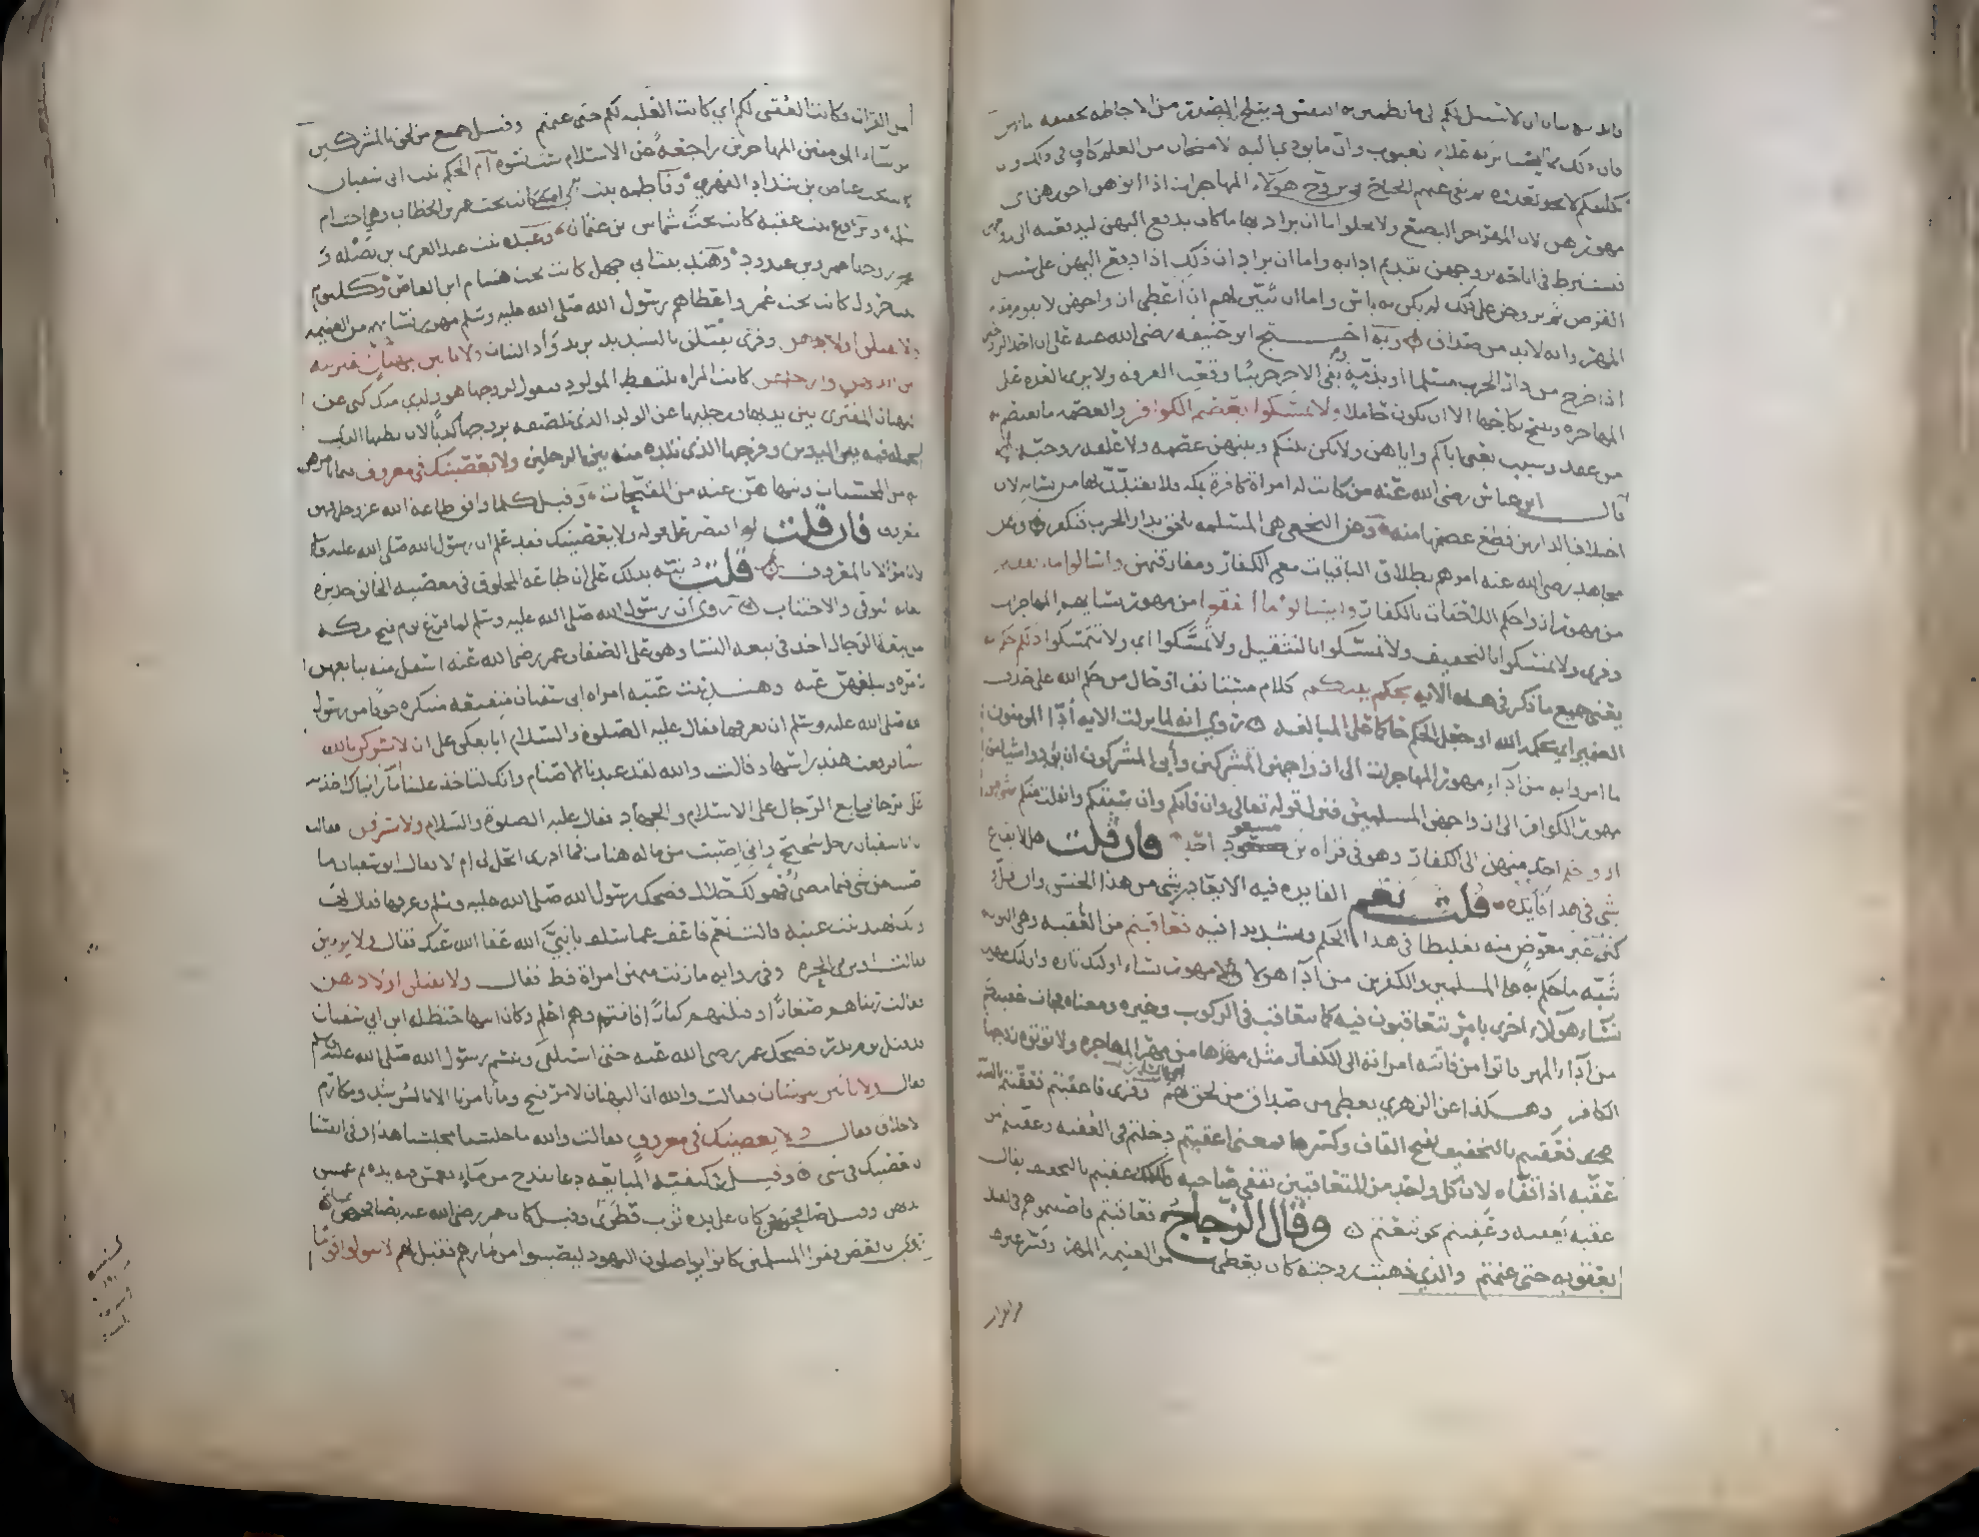 لا سبيل لكم الى ما تطمئن به النفس ويثلج به الصدر من الاحاطة بحقيقة
فان ذلك مما استأثر به علام الغيوب وان ما يودي اليه الامتحان من العلم كاف في ذلك وان
تكليفكم لا يعدوه ثم نفى عنهم الجناح في تزوج هولاء المهاجرات اذا اتوهن اجورهن اي
مهورهن لان المهر اجر البضع ولا يخلوا اما ان يراد بها ما كان يدفع اليهن ليدفعنه الى
فيشترط في اباحة تزوجهن تقديم ادائه واما ان يراد ان ذلك اذا دفع اليهن على سبيل
القرض ثم تزوجن على ذلك لم يكن به باس واما ان يبين لهم ان ما اعطى ازواجهن لا يقوم مقام
المهر وانه لابد من صداق وبه احتج ابو حنيفة رضى الله عنه على ان احد الزوجين
اذا خرج من دار الحرب مسلما او بذمة وبقى الاخر حربيا وقعت الفرقة ولا يرى العدة على
المهاجرة ويبيح نكاحها الا ان يكون حاملا ولا تمسكوا بعصم الكوافر والعصمة ما يعتصم به
من عقد وسبب يعنى اياكم واياهن ولا تكن بينكم وبينهن عصمة ولا علقة زوجية
قال ابن عباس رضى الله عنه من كانت له امراة كافرة بمكة فلا يعتدن بها من نسايه لان
اختلاف الدارين قطع عصمتها منه وعن النخعي هى المسلمة تلحق بدار الحرب فتكفر وعن
مجاهد رضى الله عنه امرهم بطلاق الباقيات مع الكفار ومفارقتهن واسالوا ما انفقتم
من مهور ازواجكم اللاحقات بالكفار وليسالوا ما انفقوا من مهور نسايهم المهاجرات
وقرى ولا تمسكوا بالتخفيف ولا تمسكوا بالتثقيل ولا تمسكوا اى ولا تتمسكوا ذلكم حكم الله
يعنى جميع ما ذكر في هذه الاية يحكم بينكم كلام مستانف او حال من حكم الله على حذف
الضمير اى يحكمه الله او جعل الحكم حاكما على المبالغة روي انه لما نزلت الاية ادا المومنون
ما امروا به من اداء مهور المهاجرات الى ازواجهن المشركين وأبى المشركون ان يؤدوا شيا من
مهور الكوافر الى ازواجهن المسلمين فنزل قوله تعالى وان فاتكم وان سبقكم وانفلت منكم شي من
ازواجكم احد منهن الى الكفار وهو في قراة بن مسعود احد فان قلت هل لايقاع
شي في هذا فايدة قلت نعم الفايدة فيه الا يغادر شي من هذا الجنس وان قل
غير معوض منه تغليظا في هذا الحكم وتشديدا فيه فعاقبتم من العقبة وهى النوبة
شبه ما حكم به على المسلمين والكفرين من ادآ هولا مهور نساء اولئك تارة واولئك مهور
نساء هؤلاء اخرى بامر يتعاقبون فيه كما يتعاقب في الركوب وغيره ومعناه فجات عقبتكم
من اداء المهر فاتوا من فاتته امراته الى الكفار مثل مهرها من مهر المهاجرة ولا توتوه زوجها
الكافر وهكذا عن الزهري يعطى من صداق من لحق بهم وقرى فاعقبتم فعقبتم بالتشديد
فعقبتم بالتخفيف بفتح القاف وكسرها فمعنى اعقبتم دخلتم في العقبة وعقبتم من
عقبه اذا قفاه لان كل واحد من المتعاقبين يقفى صاحبه وكذلك عقبتم بالتخفيف يقال
عقبه يعقبه وعقبتم نحو تبعتم وقال الزجاج فعاقبتم فاصبتموهم في القتال
بعقوبة حتى غنمتم والذي ذهبت زوجته كان يعطى من الغنيمة المهر وفسر غيرها
من القرات فكانت العقبى لكم اي كانت الغلبة لكم حتى غنمتم وقيل جميع من لحق بالمشركين
من نساء المومنين المهاجرين راجعة عن الاسلام ست نسوة ام الحكم بنت ابى سفيان
كانت تحت عياض بن شداد الفهري وفاطمة بنت ابي امية كانت تحت عمر بن الخطاب وهي اخت ام
سلمة وبروع بنت عقبة كانت تحت شماس بن عثمان وعبدة بنت عبد العزى بن نضلة و
زوجها عمرو بن عبدود وهند بنت ابي جهل كانت تحت هشام ابن العاص وكلثوم
بنت جرول كانت تحت عمر واعطاهم رسول الله صلى الله عليه وسلم مهور نسائهم من الغنيمة
ولا يقتلن اولادهن وقرى يقتلن بالتشديد يريد وأد البنات ولا ياتين ببهتان يفترينه
بين ايديهن وارجلهن كانت المراة تلتقط المولود فتقول لزوجها هو ولدي منك كنى عن
بالبهتان المفترى بين يديها ورجليها عن الولد الذى تلصقه بزوجها كذبا لان بطنها الذى
تحمله فيه بين اليدين وفرجها الذى تلده منه بين الرجلين ولا يعصينك في معروف فيما تامرهن
به من المحسنات وتنهاهن عنه من المقبحات وقيل كلما وافق طاعة الله عز وجل فهو
معروف فان قلت لو اقتصر على قوله ولا يعصينك فقد علم ان رسول الله صلى الله عليه
لا يامر الا بالمعروف قلت نبه بذلك على ان طاعة المخلوق في معصية الخالق جديرة
بغاية التوقي والاجتناب وروى ان رسول الله صلى الله عليه وسلم لما فرغ يوم فتح مكة
من بيعة الرجال اخذ في بيعة النسا وهو على الصفا وعمر رضى الله عنه اسفل منه يبايعهن
بامره ويبلغهن عنه وهند بنت عتبة امراة ابى سفيان متقنعة متنكرة خوفا من رسول
الله صلى الله عليه وسلم ان يعرفها فقال عليه الصلوة والسلام ابايعكن على ان لا تشركن بالله
شيا فرفعت هند راسها وقالت والله لقد عبدنا الاصنام وانك لتاخذ علينا امرا ما رايناك اخذته
على الرجال تبايع الرجال على الاسلام والجهاد فقال عليه الصلوة والسلام ولا تسرقن فقالت
ان ابا سفيان رجل شحيح واني اصبت من ماله هنات فما ادرى اتحل لى ام لا فقال ابو سفيان ما
اصبت من شى فيما مضى فهو لك حلال فضحك رسول الله صلى الله عليه وسلم وعرفها فقال لها
وانك لهند بنت عتبة قالت نعم فاعف عما سلف يا نبى الله عفا الله عنك فقال ولا يزنين
فقالت اوتزني الحرة وفي رواية ما زنت منهن امراة قط فقال ولا يقتلن اولادهن
فقالت ربيناهم صغارا وقتلتهم كبارا فانتم وهم اعلم وكان ابنها حنظلة ابن ابي سفيان
قد قتل يوم بدر فضحك عمر رضى الله عنه حتى استلقى وتبسم رسول الله صلى الله عليه وسلم
فقال ولا ياتين ببهتان فقالت والله ان البهتان لامر قبيح وما تامرنا الا بالرشد ومكارم
الاخلاق فقال ولا يعصينك في معروف فقالت والله ما جلسنا مجلسنا هذا وفى انفسنا
ان نعصيك في شى وقيل في كيفية المبايعة دعا بقدح من ماء فغمس فيه يده ثم غمسن
ايديهن وقيل صافحهن وكان على يده ثوب قطرى وقيل كان عمر رضى الله عنه يصافحهن عنه
روى ان بعض فقرا المسلمين كانوا يواصلون اليهود ليصيبوا من ثمارهم فقيل لهم لا تتولوا قوما